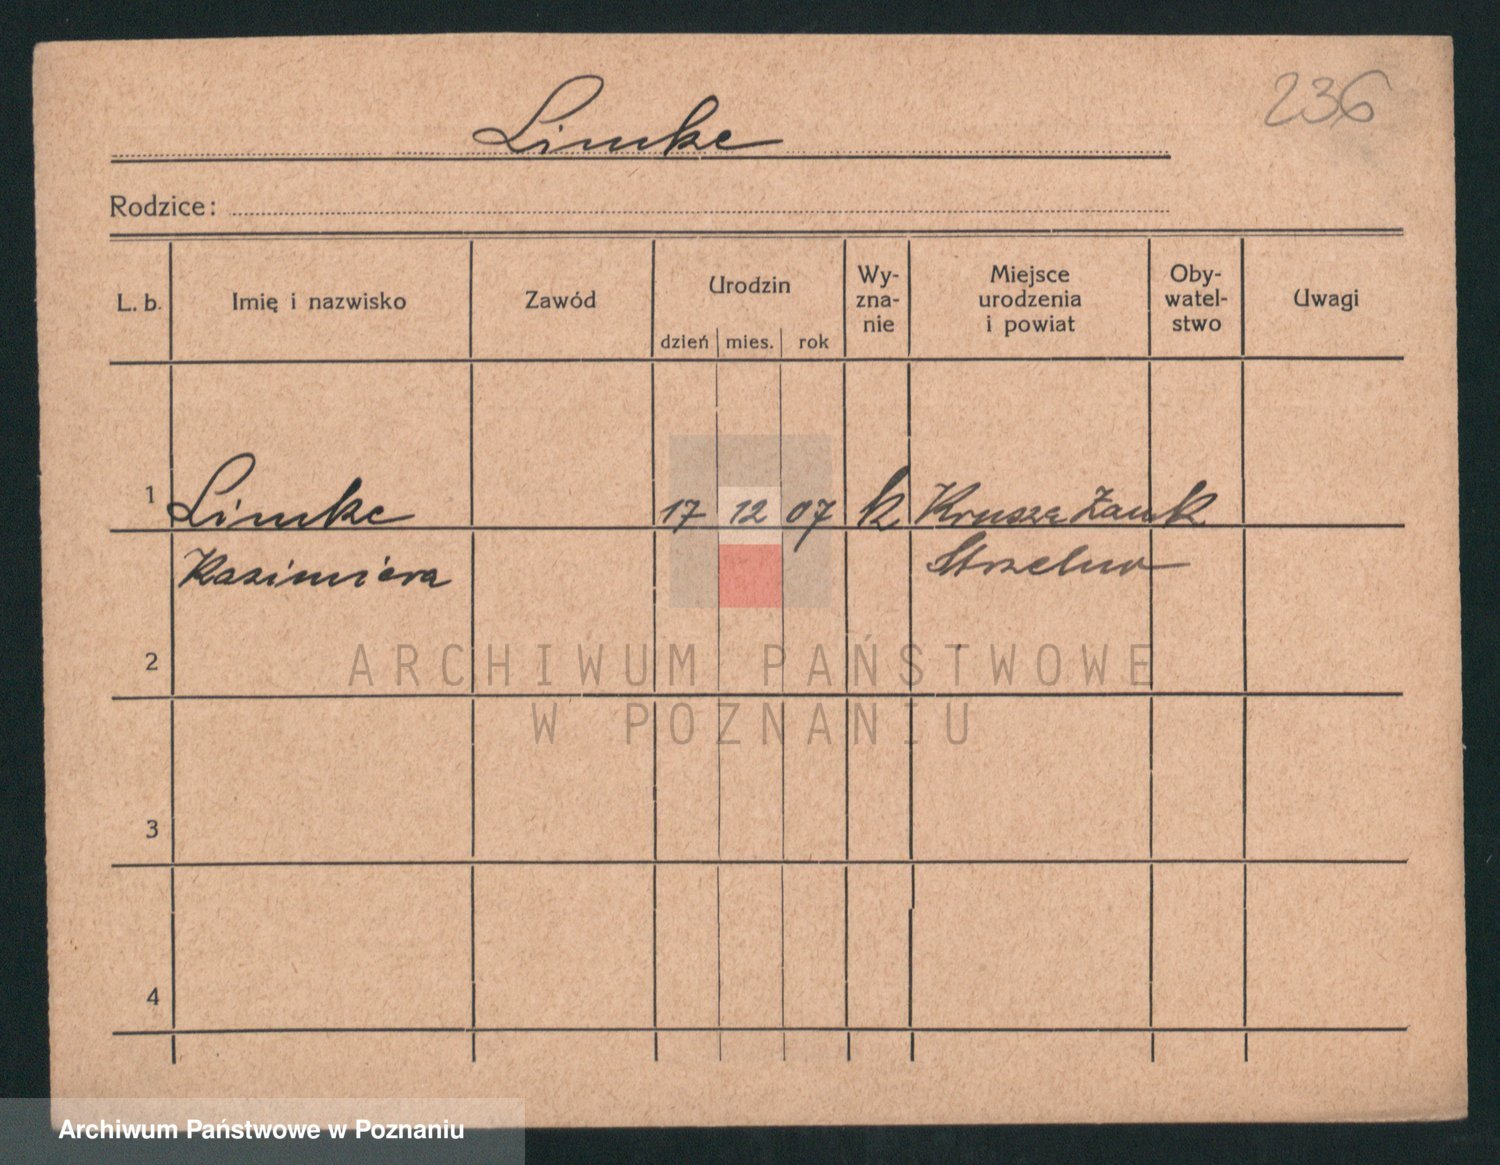 236
Limke
Rodzice:
L. b. Imię i nazwisko Zawód Urodzin dzień mies. rok Wy-zna-nie Miejsce urodzenia i powiat Oby-watel-stwo Uwagi
1 Limke 17 12 07 k Krusza Zamk
Kazimiera Strzelno
2
ARCHIWUM PAŃSTWOWE
W POZNANIU
3
4
Archiwum Państwowe w Poznaniu